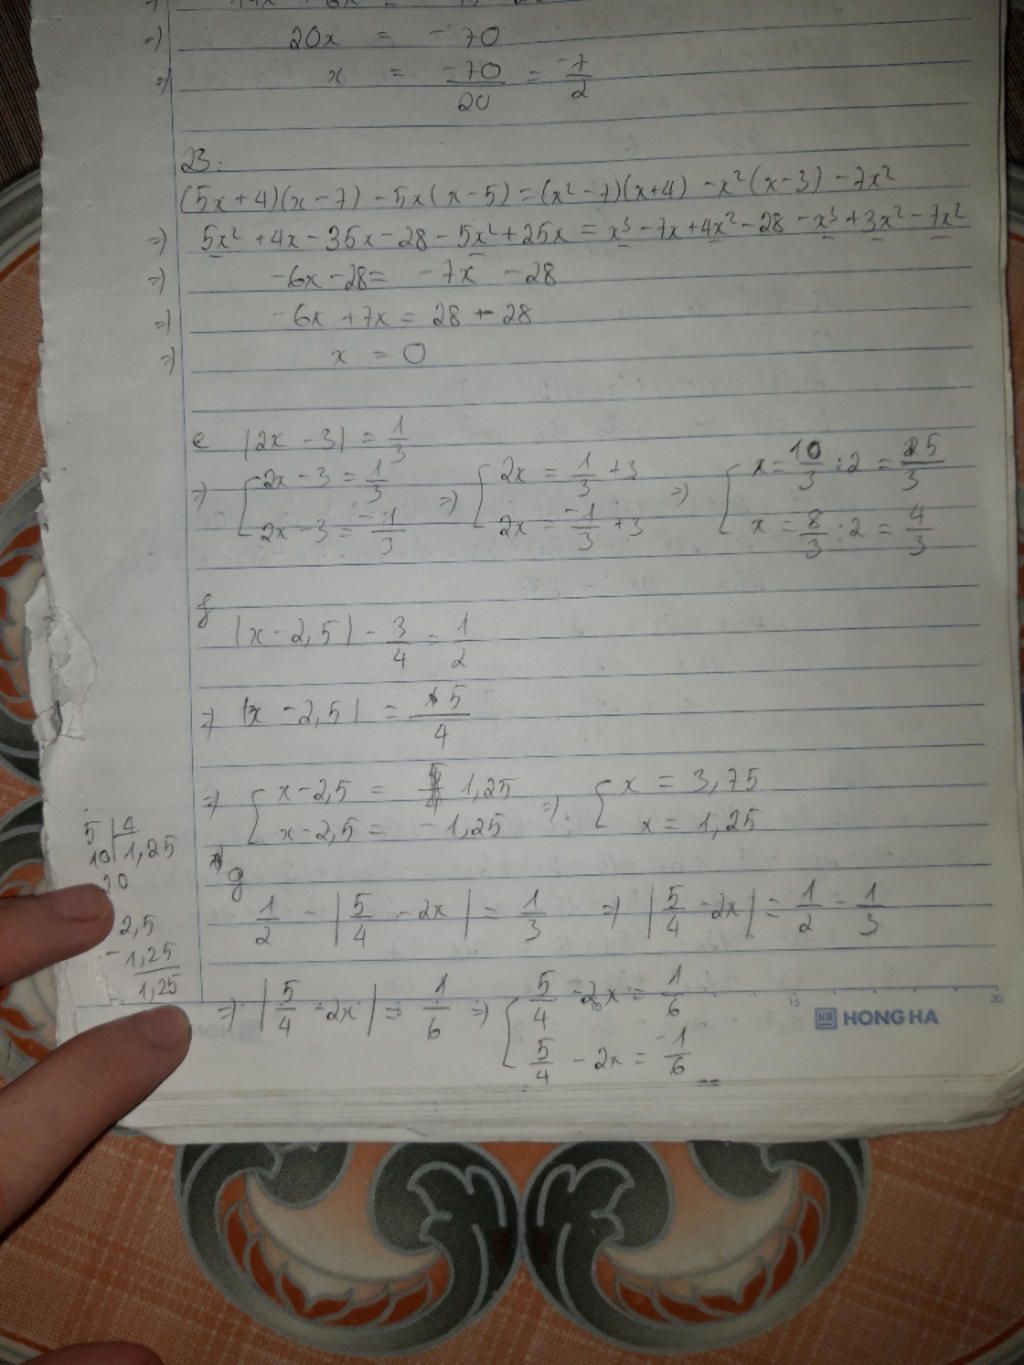 20x = -70
=) x = -70/20 = -7/2
23:
(5x+4)(x-7) - 5x(x-5) = (x²-7)(x+4) - x²(x-3) - 7x²
=) 5x² + 4x - 35x - 28 - 5x² + 25x = x³ - 7x + 4x² - 28 - x³ + 3x² - 7x²
=) -6x - 28 = -7x - 28
=) -6x + 7x = 28 - 28
=) x = 0
e |2x - 3| = 1/3
=) [ 2x - 3 = 1/3 =) [ 2x = 1/3 + 3 =) [ x = 10/3 : 2 = 5/3
2x - 3 = -1/3 2x = -1/3 + 3 x = 8/3 : 2 = 4/3
f
|x - 2,5| - 3/4 = 1/2
=) |x - 2,5| = 5/4
=) [ x - 2,5 = 1,25 =) [ x = 3,75
x - 2,5 = -1,25 x = 1,25
5 | 4
10 | 1,25
20
2,5
- 1,25
1,25
g
1/2 - |5/4 - 2x| = 1/3 =) |5/4 - 2x| = 1/2 - 1/3
=) |5/4 - 2x| = 1/6 =) [ 5/4 - 2x = 1/6
5/4 - 2x = -1/6
15 20
HONG HA